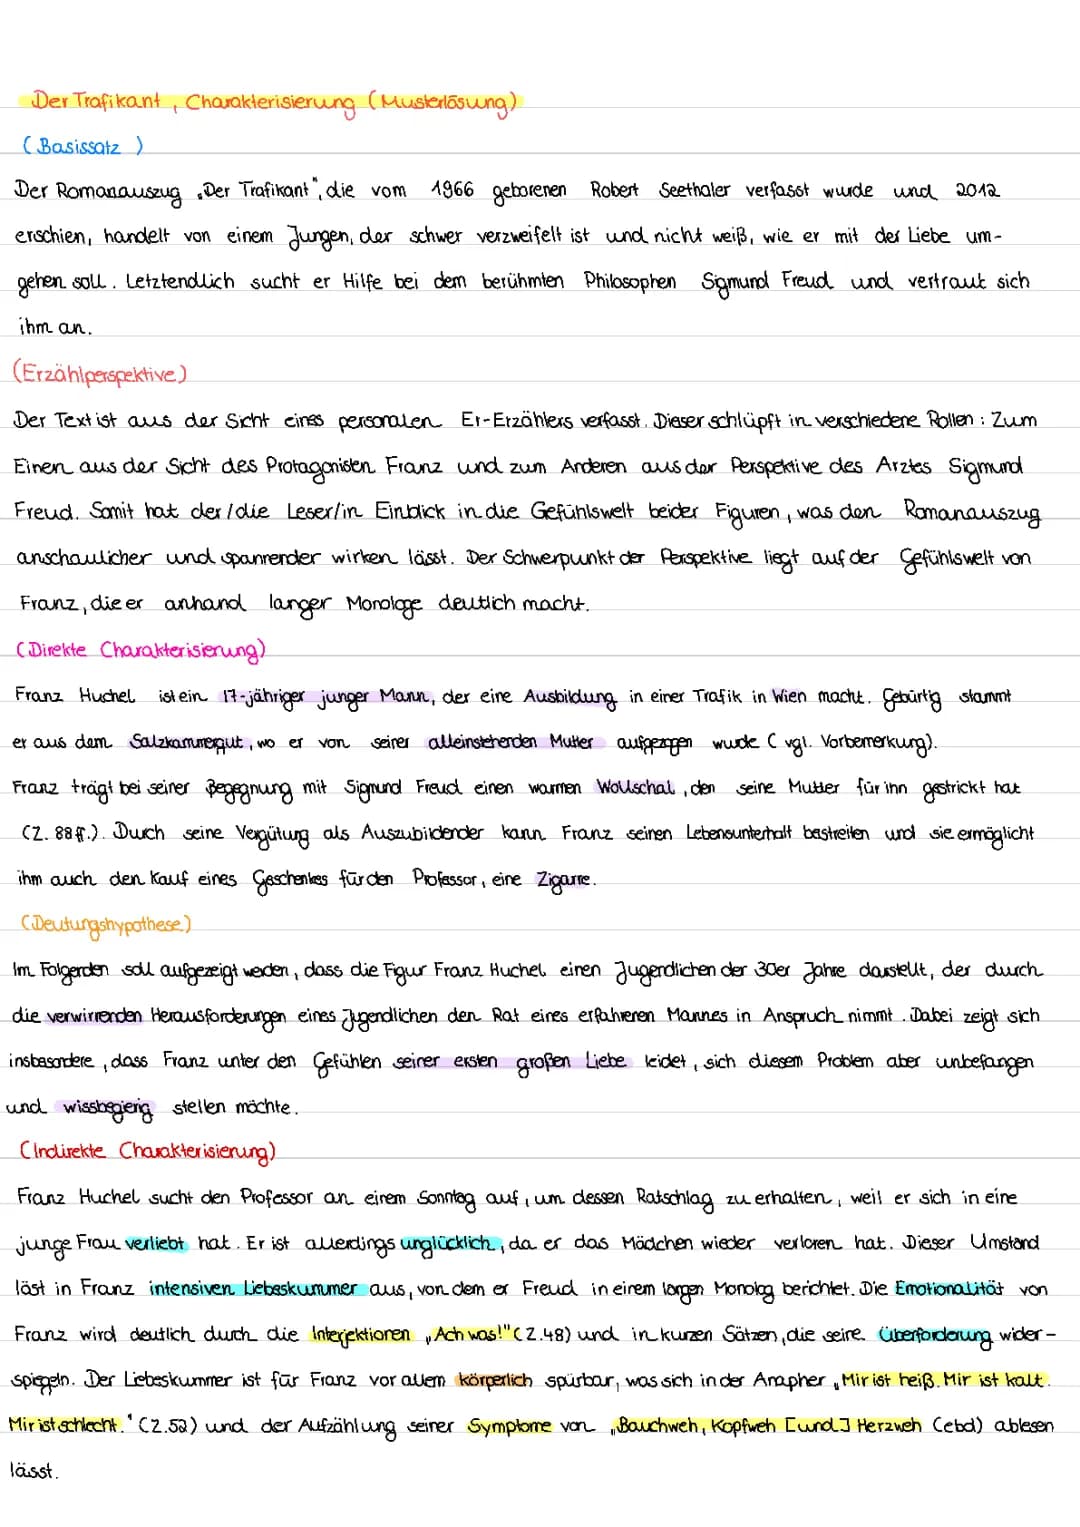 Der Trafikant, Charakterisierung (Musterlösung)
(Basissatz)
Der Romanauszug „Der Trafikant", die vom 1966 geborenen Robert Seethaler verfasst wurde und 2012
erschien, handelt von einem Jungen, der schwer verzweifelt ist und nicht weiß, wie er mit der Liebe um-
gehen soll. Letztendlich sucht er Hilfe bei dem berühmten Philosophen Sigmund Freud und vertraut sich
ihm an.
(Erzählperspektive)
Der Text ist aus der Sicht eines personalen Er-Erzählers verfasst. Dieser schlüpft in verschiedene Rollen: Zum
Einen aus der Sicht des Protagonisten Franz und zum Anderen aus der Perspektive des Arztes Sigmund
Freud. Somit hat der/die Leser/in Einblick in die Gefühlswelt beider Figuren, was den Romanauszug
anschaulicher und spannender wirken lässt. Der Schwerpunkt der Perspektive liegt auf der Gefühlswelt von
Franz, die er anhand langer Monologe deutlich macht.
(Direkte Charakterisierung)
Franz Huchel ist ein 17-jähriger junger Mann, der eine Ausbildung in einer Trafik in Wien macht. Gebürtig stammt
er aus dem Salzkammergut, wo er von seiner alleinstehenden Mutter aufgezogen wurde (vgl. Vorbemerkung).
Franz trägt bei seiner Begegnung mit Sigmund Freud einen warmen Wollschal, den seine Mutter für ihn gestrickt hat
(Z. 88 ff.). Durch seine Vergütung als Auszubildender kann Franz seinen Lebensunterhalt bestreiten und sie ermöglicht
ihm auch den Kauf eines Geschenkes für den Professor, eine Zigarre.
(Deutungshypothese)
Im Folgenden soll aufgezeigt werden, dass die Figur Franz Huchel einen Jugendlichen der 30er Jahre darstellt, der durch
die verwirrenden Herausforderungen eines Jugendlichen den Rat eines erfahreren Mannes in Anspruch nimmt. Dabei zeigt sich
insbesondere, dass Franz unter den Gefühlen seiner ersten großen Liebe leidet, sich diesem Problem aber unbefangen
und wissbegierig stellen möchte.
(Indirekte Charakterisierung)
Franz Huchel sucht den Professor an einem Sonntag auf, um dessen Ratschlag zu erhalten, weil er sich in eine
junge Frau verliebt hat. Er ist allerdings unglücklich, da er das Mädchen wieder verloren hat. Dieser Umstand
löst in Franz intensiven Liebeskummer aus, von dem er Freud in einem langen Monolog berichtet. Die Emotionalität von
Franz wird deutlich durch die Interjektionen „Ach was!" (Z.48) und in kurzen Sätzen, die seine Überforderung wider-
spiegeln. Der Liebeskummer ist für Franz vor allem körperlich spürbar, was sich in der Anapher „Mir ist heiß. Mir ist kalt.
Mir ist schlecht." (Z.52) und der Aufzählung seiner Symptome von „Bauchweh, Kopfweh [und] Herzweh (ebd) ablesen
lässt.